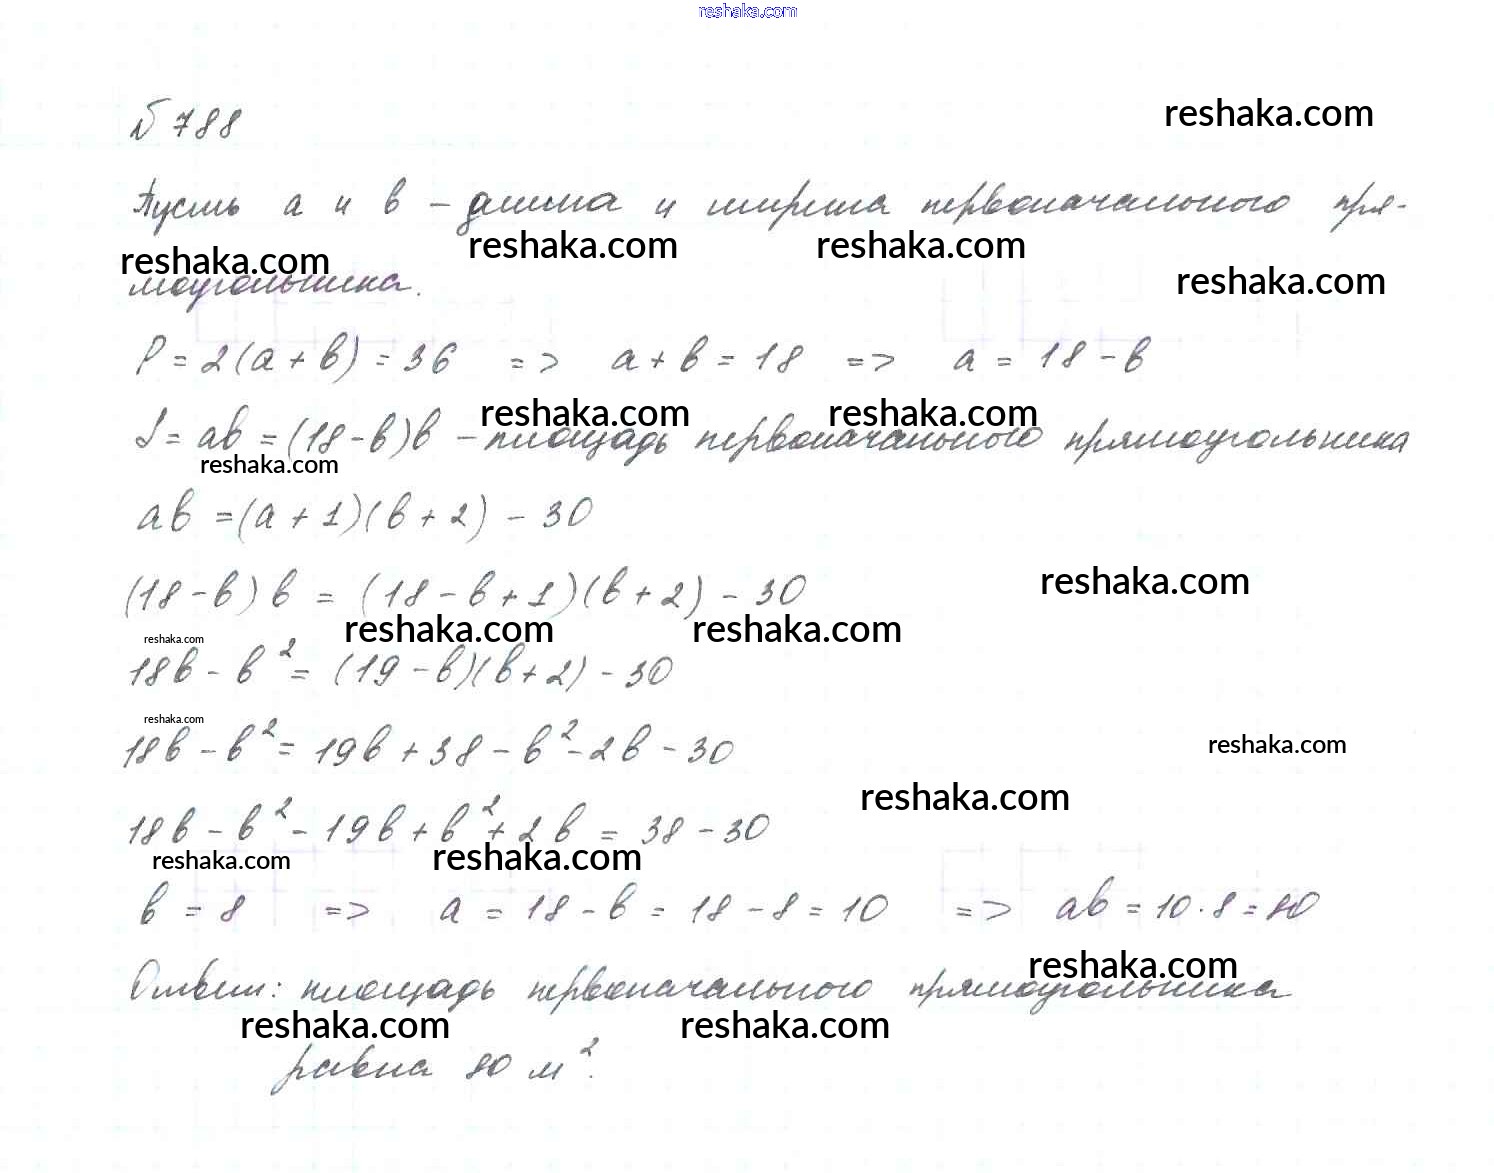 reshaka.com
№ 788
reshaka.com
Пусть a и b – длина и ширина первоначального пря-
reshaka.com reshaka.com reshaka.com
моугольника.
reshaka.com
P = 2(a + b) = 36 => a + b = 18 => a = 18 - b
reshaka.com reshaka.com
S = ab = (18 - b)b – площадь первоначального прямоугольника
reshaka.com
ab = (a + 1)(b + 2) - 30
(18 - b)b = (18 - b + 1)(b + 2) - 30
reshaka.com
reshaka.com reshaka.com
reshaka.com
18b - b² = (19 - b)(b + 2) - 30
reshaka.com
18b - b² = 19b + 38 - b² - 2b - 30
reshaka.com
reshaka.com
18b - b² - 19b + b² + 2b = 38 - 30
reshaka.com reshaka.com
b = 8 => a = 18 - b = 18 - 8 = 10 => ab = 10 · 8 = 80
reshaka.com
Ответ: площадь первоначального прямоугольника
reshaka.com reshaka.com
равна 80 м².